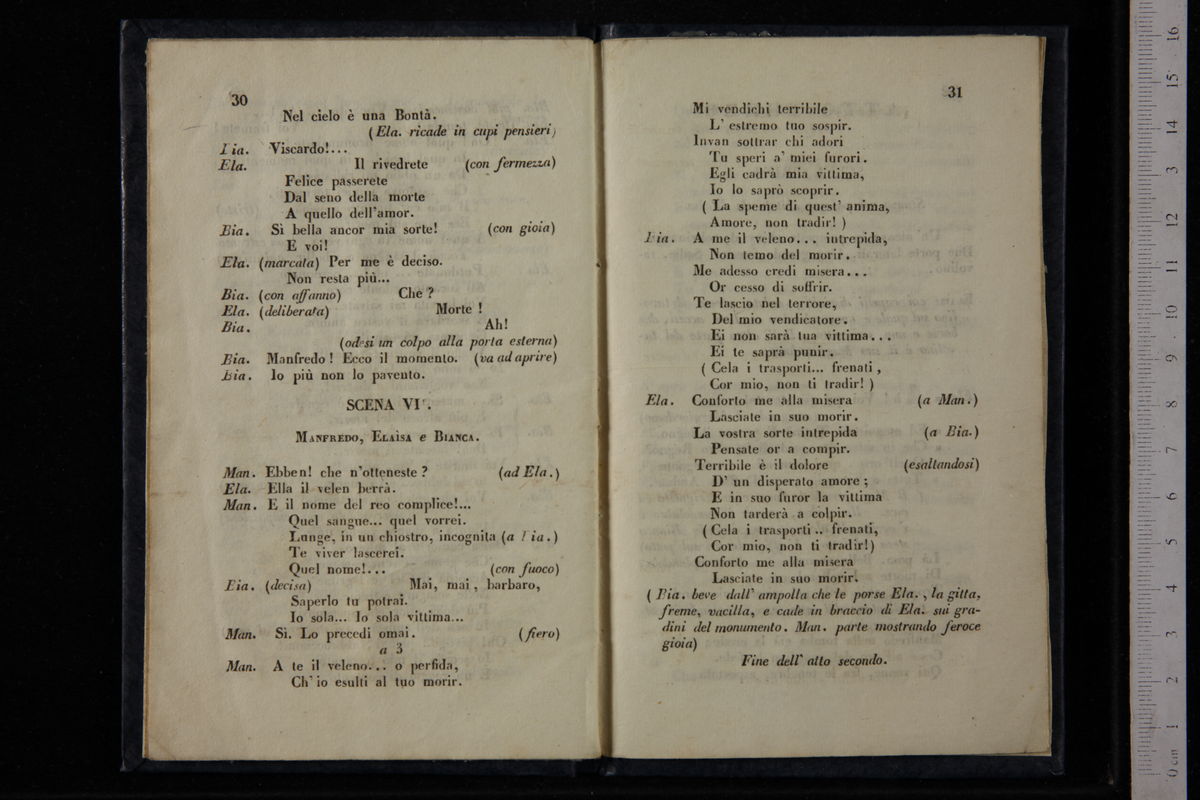 30
Nel cielo è una Bontà.
(Ela. ricade in cupi pensieri)
Bia. Viscardo!...
Ela. Il rivedrete (con fermezza)
Felice passerete
Dal seno della morte
A quello dell'amor.
Bia. Sì bella ancor mia sorte! (con gioia)
E voi!
Ela. (marcata) Per me è deciso.
Non resta più...
Bia. (con affanno) Che ?
Ela. (deliberata) Morte !
Bia. Ah!
(odesi un colpo alla porta esterna)
Bia. Manfredo ! Ecco il momento. (va ad aprire)
Bia. Io più non lo pavento.
SCENA VIª.
MANFREDO, ELAISA e BIANCA.
Man. Ebben! che n'otteneste ? (ad Ela.)
Ela. Ella il velen berrà.
Man. E il nome del reo complice!...
Quel sangue... quel vorrei.
Lunge, in un chiostro, incognita (a Bia.)
Te viver lascerei.
Quel nome!... (con fuoco)
Bia. (decisa) Mai, mai, barbaro,
Saperlo tu potrai.
Io sola... Io sola vittima...
Man. Sì. Lo precedi omai. (fiero)
a 3
Man. A te il veleno... o perfida,
Ch' io esulti al tuo morir.
31
Mi vendichi terribile
L' estremo tuo sospir.
Invan sottrar chi adori
Tu speri a' miei furori.
Egli cadrà mia vittima,
Io lo saprò scoprir.
( La speme di quest' anima,
Amore, non tradir! )
Bia. A me il veleno... intrepida,
Non temo del morir.
Me adesso credi misera...
Or cesso di soffrir.
Te lascio nel terrore,
Del mio vendicatore.
Ei non sarà tua vittima...
Ei te saprà punir.
( Cela i trasporti... frenati ,
Cor mio, non ti tradir! )
Ela. Conforto me alla misera (a Man.)
Lasciate in suo morir.
La vostra sorte intrepida (a Bia.)
Pensate or a compir.
Terribile è il dolore (esaltandosi)
D' un disperato amore ;
E in suo furor la vittima
Non tarderà a colpir.
( Cela i trasporti .. frenati,
Cor mio, non ti tradir!)
Conforto me alla misera
Lasciate in suo morir.
( Bia. beve dall' ampolla che le porse Ela. , la gitta,
freme, vacilla, e cade in braccio di Ela. sui gra-
dini del monumento. Man. parte mostrando feroce
gioia)
Fine dell' atto secondo.
0 cm 1 2 3 4 5 6 7 8 9 10 11 12 13 14 15 16